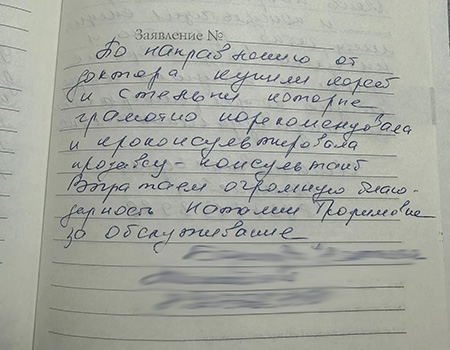 Заявление №
По направлению от
доктора купили корсет
и стельки которые
грамотно порекомендовала
и проконсультировала
продавец-консультант
Выражаем огромную благо-
дарность Наталии
за обслуживание